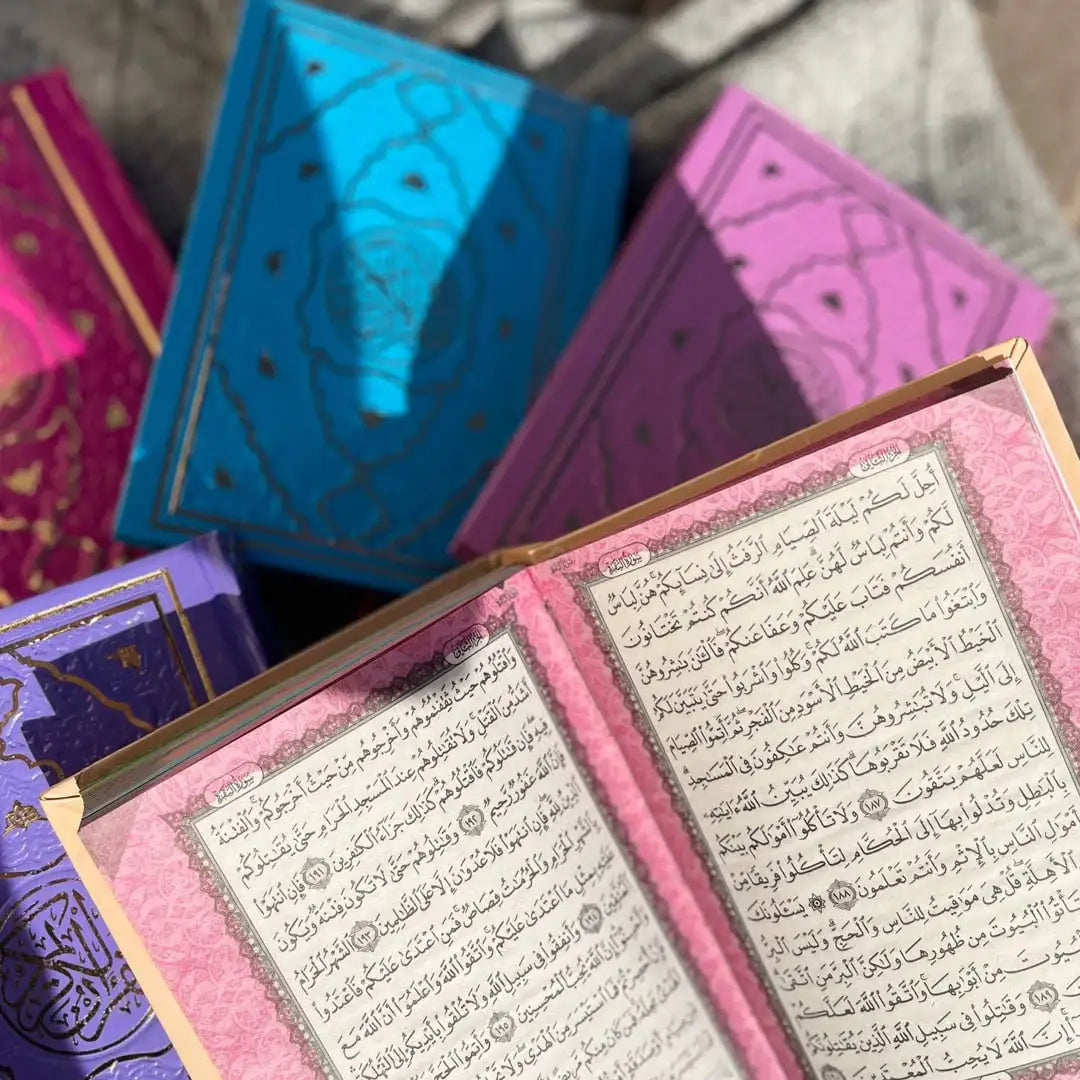 الجزء الثاني
سورة البقرة
أُحِلَّ لَكُمْ لَيْلَةَ ٱلصِّيَامِ ٱلرَّفَثُ إِلَىٰ نِسَآئِكُمْ هُنَّ لِبَاسٌ
لَّكُمْ وَأَنتُمْ لِبَاسٌ لَّهُنَّ عَلِمَ ٱللَّهُ أَنَّكُمْ كُنتُمْ تَخْتَانُونَ
أَنفُسَكُمْ فَتَابَ عَلَيْكُمْ وَعَفَا عَنكُمْ فَٱلْـَٰٔنَ بَـٰشِرُوهُنَّ
وَٱبْتَغُوا۟ مَا كَتَبَ ٱللَّهُ لَكُمْ وَكُلُوا۟ وَٱشْرَبُوا۟ حَتَّىٰ يَتَبَيَّنَ لَكُمُ
ٱلْخَيْطُ ٱلْأَبْيَضُ مِنَ ٱلْخَيْطِ ٱلْأَسْوَدِ مِنَ ٱلْفَجْرِ ثُمَّ أَتِمُّوا۟ ٱلصِّيَامَ
إِلَى ٱلَّيْلِ وَلَا تُبَـٰشِرُوهُنَّ وَأَنتُمْ عَـٰكِفُونَ فِى ٱلْمَسَـٰجِدِ
تِلْكَ حُدُودُ ٱللَّهِ فَلَا تَقْرَبُوهَا كَذَٰلِكَ يُبَيِّنُ ٱللَّهُ ءَايَـٰتِهِۦ
لِلنَّاسِ لَعَلَّهُمْ يَتَّقُونَ ١٨٧ وَلَا تَأْكُلُوٓا۟ أَمْوَٰلَكُم بَيْنَكُم
بِٱلْبَـٰطِلِ وَتُدْلُوا۟ بِهَآ إِلَى ٱلْحُكَّامِ لِتَأْكُلُوا۟ فَرِيقًا مِّنْ
أَمْوَٰلِ ٱلنَّاسِ بِٱلْإِثْمِ وَأَنتُمْ تَعْلَمُونَ ١٨٨ ۞ يَسْـَٔلُونَكَ
ٱلْأَهِلَّةِ قُلْ هِىَ مَوَٰقِيتُ لِلنَّاسِ وَٱلْحَجِّ وَلَيْسَ ٱلْبِرُّ
تَأْتُوا۟ ٱلْبُيُوتَ مِن ظُهُورِهَا وَلَـٰكِنَّ ٱلْبِرَّ مَنِ ٱتَّقَىٰ
ٱلْبُيُوتَ مِنْ أَبْوَٰبِهَا وَٱتَّقُوا۟ ٱللَّهَ لَعَلَّكُمْ
١٨٩ وَقَـٰتِلُوا۟ فِى سَبِيلِ ٱللَّهِ ٱلَّذِينَ يُقَـٰتِلُونَكُمْ
إِنَّ ٱللَّهَ لَا يُحِبُّ ٱلْمُعْتَدِينَ
الجزء الثاني
سورة البقرة
وَٱقْتُلُوهُمْ حَيْثُ ثَقِفْتُمُوهُمْ وَأَخْرِجُوهُم مِّنْ حَيْثُ أَخْرَجُوكُمْ وَٱلْفِتْنَةُ
أَشَدُّ مِنَ ٱلْقَتْلِ وَلَا تُقَـٰتِلُوهُمْ عِندَ ٱلْمَسْجِدِ ٱلْحَرَامِ حَتَّىٰ يُقَـٰتِلُوكُمْ
فِيهِ فَإِن قَـٰتَلُوكُمْ فَٱقْتُلُوهُمْ كَذَٰلِكَ جَزَآءُ ٱلْكَـٰفِرِينَ ١٩١ فَإِنِ ٱنتَهَوْا۟
فَإِنَّ ٱللَّهَ غَفُورٌ رَّحِيمٌ ١٩٢ وَقَـٰتِلُوهُمْ حَتَّىٰ لَا تَكُونَ فِتْنَةٌ وَيَكُونَ
ٱلدِّينُ لِلَّهِ فَإِنِ ٱنتَهَوْا۟ فَلَا عُدْوَٰنَ إِلَّا عَلَى ٱلظَّـٰلِمِينَ ١٩٣ ٱلشَّهْرُ ٱلْحَرَامُ
بِٱلشَّهْرِ ٱلْحَرَامِ وَٱلْحُرُمَـٰتُ قِصَاصٌ فَمَنِ ٱعْتَدَىٰ عَلَيْكُمْ فَٱعْتَدُوا۟
عَلَيْهِ بِمِثْلِ مَا ٱعْتَدَىٰ عَلَيْكُمْ وَٱتَّقُوا۟ ٱللَّهَ وَٱعْلَمُوٓا۟ أَنَّ ٱللَّهَ مَعَ
ٱلْمُتَّقِينَ ١٩٤ وَأَنفِقُوا۟ فِى سَبِيلِ ٱللَّهِ وَلَا تُلْقُوا۟ بِأَيْدِيكُمْ إِلَى ٱلتَّهْلُكَةِ
وَأَحْسِنُوٓا۟ إِنَّ ٱللَّهَ يُحِبُّ ٱلْمُحْسِنِينَ ١٩٥ وَأَتِمُّوا۟
أُحْصِرْتُمْ فَمَا ٱسْتَيْسَرَ مِنَ ٱلْهَدْىِ وَلَا